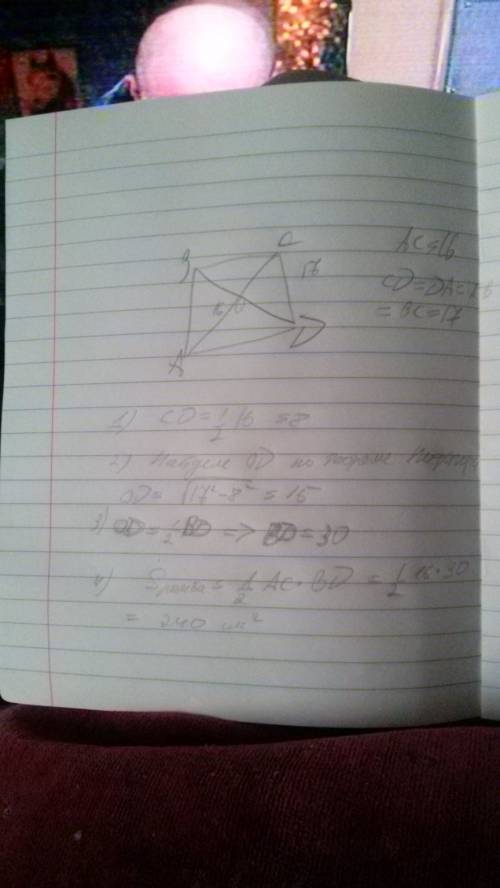 B
C
AC=16
CD=DA=AB
=BC=17
D
A
1) CO=1/2 16 =8
2) Найдем OD по теореме
OD=√17²-8² = 15
3) OD=1/2 BD => BD=30
4) Sромба= 1/2 AC·BD = 1/2 16·30
= 240 см²